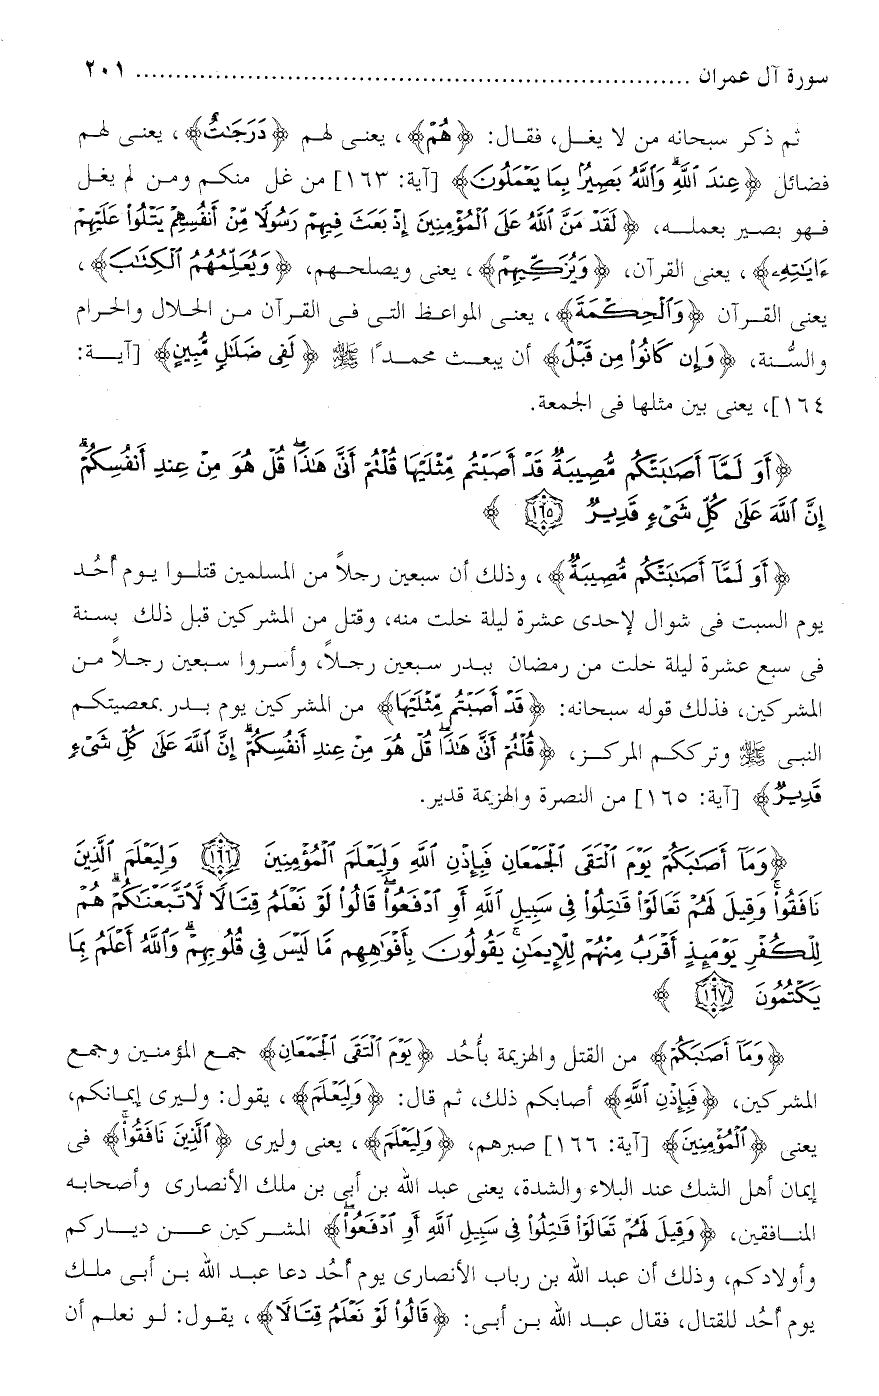 سورة آل عمران ........................................................................ ٢٠١
ثم ذكر سبحانه من لا يغل، فقال: ﴿هُمْ﴾، يعنى لهم ﴿دَرَجَـٰتٌ﴾، يعنى لهم
فضائل ﴿عِندَ ٱللَّهِ ۗ وَٱللَّهُ بَصِيرٌۢ بِمَا يَعْمَلُونَ﴾ [آية: ١٦٣] من غل منكم ومن لم يغل
فهو بصير بعمله، ﴿لَقَدْ مَنَّ ٱللَّهُ عَلَى ٱلْمُؤْمِنِينَ إِذْ بَعَثَ فِيهِمْ رَسُولًا مِّنْ أَنفُسِهِمْ يَتْلُوا۟ عَلَيْهِمْ
ءَايَـٰتِهِۦ﴾، يعنى القرآن، ﴿وَيُزَكِّيهِمْ﴾، يعنى ويصلحهم، ﴿وَيُعَلِّمُهُمُ ٱلْكِتَـٰبَ﴾،
يعنى القرآن ﴿وَٱلْحِكْمَةَ﴾، يعنى المواعظ التى فى القرآن من الحلال والحرام
والسُّنة، ﴿وَإِن كَانُوا۟ مِن قَبْلُ﴾ أن يبعث محمدًا ﷺ ﴿لَفِى ضَلَـٰلٍ مُّبِينٍ﴾ [آية:
١٦٤]، يعنى بين مثلها فى الجمعة.
﴿أَوَ لَمَّآ أَصَـٰبَتْكُم مُّصِيبَةٌ قَدْ أَصَبْتُم مِّثْلَيْهَا قُلْتُمْ أَنَّىٰ هَـٰذَا ۖ قُلْ هُوَ مِنْ عِندِ أَنفُسِكُمْ ۗ
إِنَّ ٱللَّهَ عَلَىٰ كُلِّ شَىْءٍ قَدِيرٌ ١٦٥﴾
﴿أَوَ لَمَّآ أَصَـٰبَتْكُم مُّصِيبَةٌ﴾، وذلك أن سبعين رجلاً من المسلمين قتلوا يوم أُحُد
يوم السبت فى شوال لإحدى عشرة ليلة خلت منه، وقتل من المشركين قبل ذلك بسنة
فى سبع عشرة ليلة خلت من رمضان ببدر سبعين رجلاً، وأسروا سبعين رجلاً من
المشركين، فذلك قوله سبحانه: ﴿قَدْ أَصَبْتُم مِّثْلَيْهَا﴾ من المشركين يوم بدر بمعصيتكم
النبى ﷺ وترككم المركز، ﴿قُلْتُمْ أَنَّىٰ هَـٰذَا ۖ قُلْ هُوَ مِنْ عِندِ أَنفُسِكُمْ ۗ إِنَّ ٱللَّهَ عَلَىٰ كُلِّ شَىْءٍ
قَدِيرٌ﴾ [آية: ١٦٥] من النصرة والهزيمة قدير.
﴿وَمَآ أَصَـٰبَكُمْ يَوْمَ ٱلْتَقَى ٱلْجَمْعَانِ فَبِإِذْنِ ٱللَّهِ وَلِيَعْلَمَ ٱلْمُؤْمِنِينَ ١٦٦ وَلِيَعْلَمَ ٱلَّذِينَ
نَافَقُوا۟ ۚ وَقِيلَ لَهُمْ تَعَالَوْا۟ قَـٰتِلُوا۟ فِى سَبِيلِ ٱللَّهِ أَوِ ٱدْفَعُوا۟ ۖ قَالُوا۟ لَوْ نَعْلَمُ قِتَالًا لَّٱتَّبَعْنَـٰكُمْ ۗ هُمْ
لِلْكُفْرِ يَوْمَئِذٍ أَقْرَبُ مِنْهُمْ لِلْإِيمَـٰنِ ۚ يَقُولُونَ بِأَفْوَٰهِهِم مَّا لَيْسَ فِى قُلُوبِهِمْ ۗ وَٱللَّهُ أَعْلَمُ بِمَا
يَكْتُمُونَ ١٦٧﴾
﴿وَمَآ أَصَـٰبَكُمْ﴾ من القتل والهزيمة بأُحُد ﴿يَوْمَ ٱلْتَقَى ٱلْجَمْعَانِ﴾ جمع المؤمنين وجمع
المشركين، ﴿فَبِإِذْنِ ٱللَّهِ﴾ أصابكم ذلك، ثم قال: ﴿وَلِيَعْلَمَ﴾، يقول: وليرى إيمانكم،
يعنى ﴿ٱلْمُؤْمِنِينَ﴾ [آية: ١٦٦] صبرهم، ﴿وَلِيَعْلَمَ﴾، يعنى وليرى ﴿ٱلَّذِينَ نَافَقُوا۟ ۚ﴾ فى
إيمان أهل الشك عند البلاء والشدة، يعنى عبد الله بن أبى بن ملك الأنصارى وأصحابه
المنافقين، ﴿وَقِيلَ لَهُمْ تَعَالَوْا۟ قَـٰتِلُوا۟ فِى سَبِيلِ ٱللَّهِ أَوِ ٱدْفَعُوا۟ ۖ﴾ المشركين عن دياركم
وأولادكم، وذلك أن عبد الله بن رباب الأنصارى يوم أُحُد دعا عبد الله بن أبى ملك
يوم أُحُد للقتال، فقال عبد الله بن أبى: ﴿قَالُوا۟ لَوْ نَعْلَمُ قِتَالًا﴾، يقول: لو نعلم أن